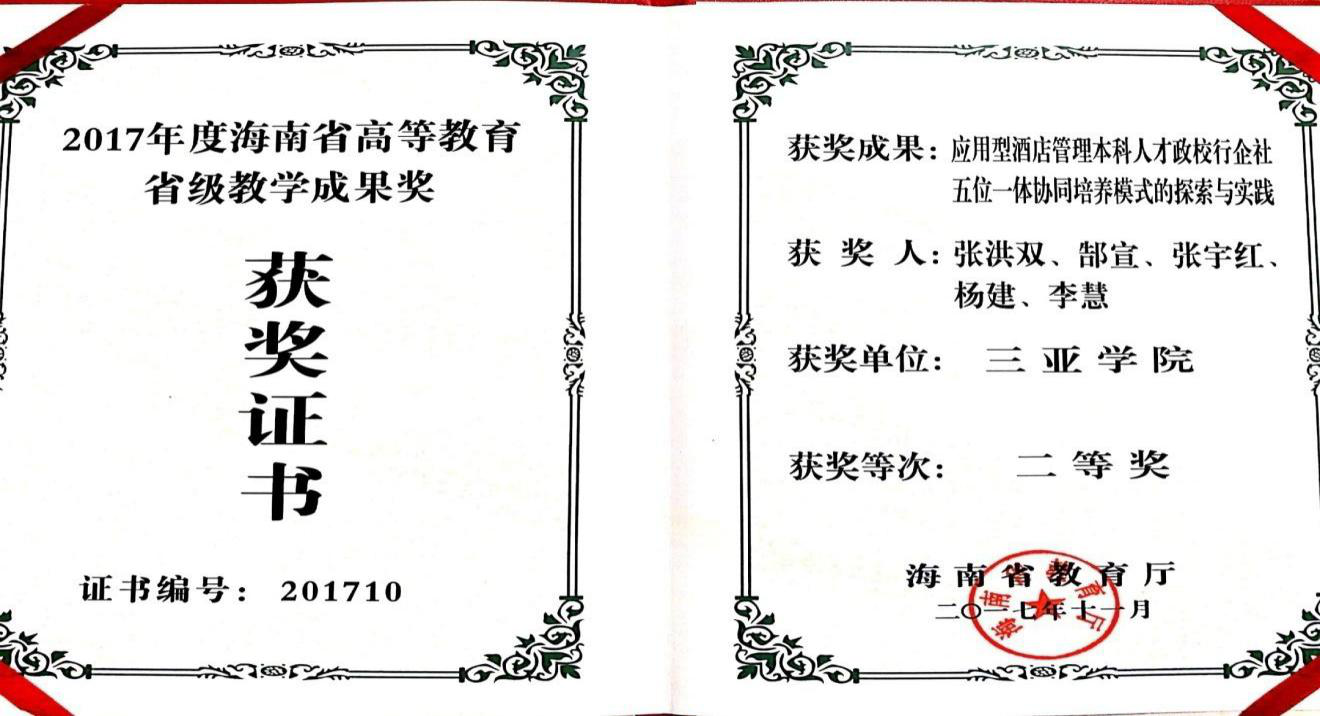 2017年度海南省高等教育
省级教学成果奖
获
奖
证
书
证书编号：201710
获奖成果：应用型酒店管理本科人才政校行企社
五位一体协同培养模式的探索与实践
获奖人：张洪双、郜宣、张宇红、
杨建、李慧
获奖单位：三亚学院
获奖等次：二等奖
海南省教育厅
二〇一七年十一月
海南省教育厅